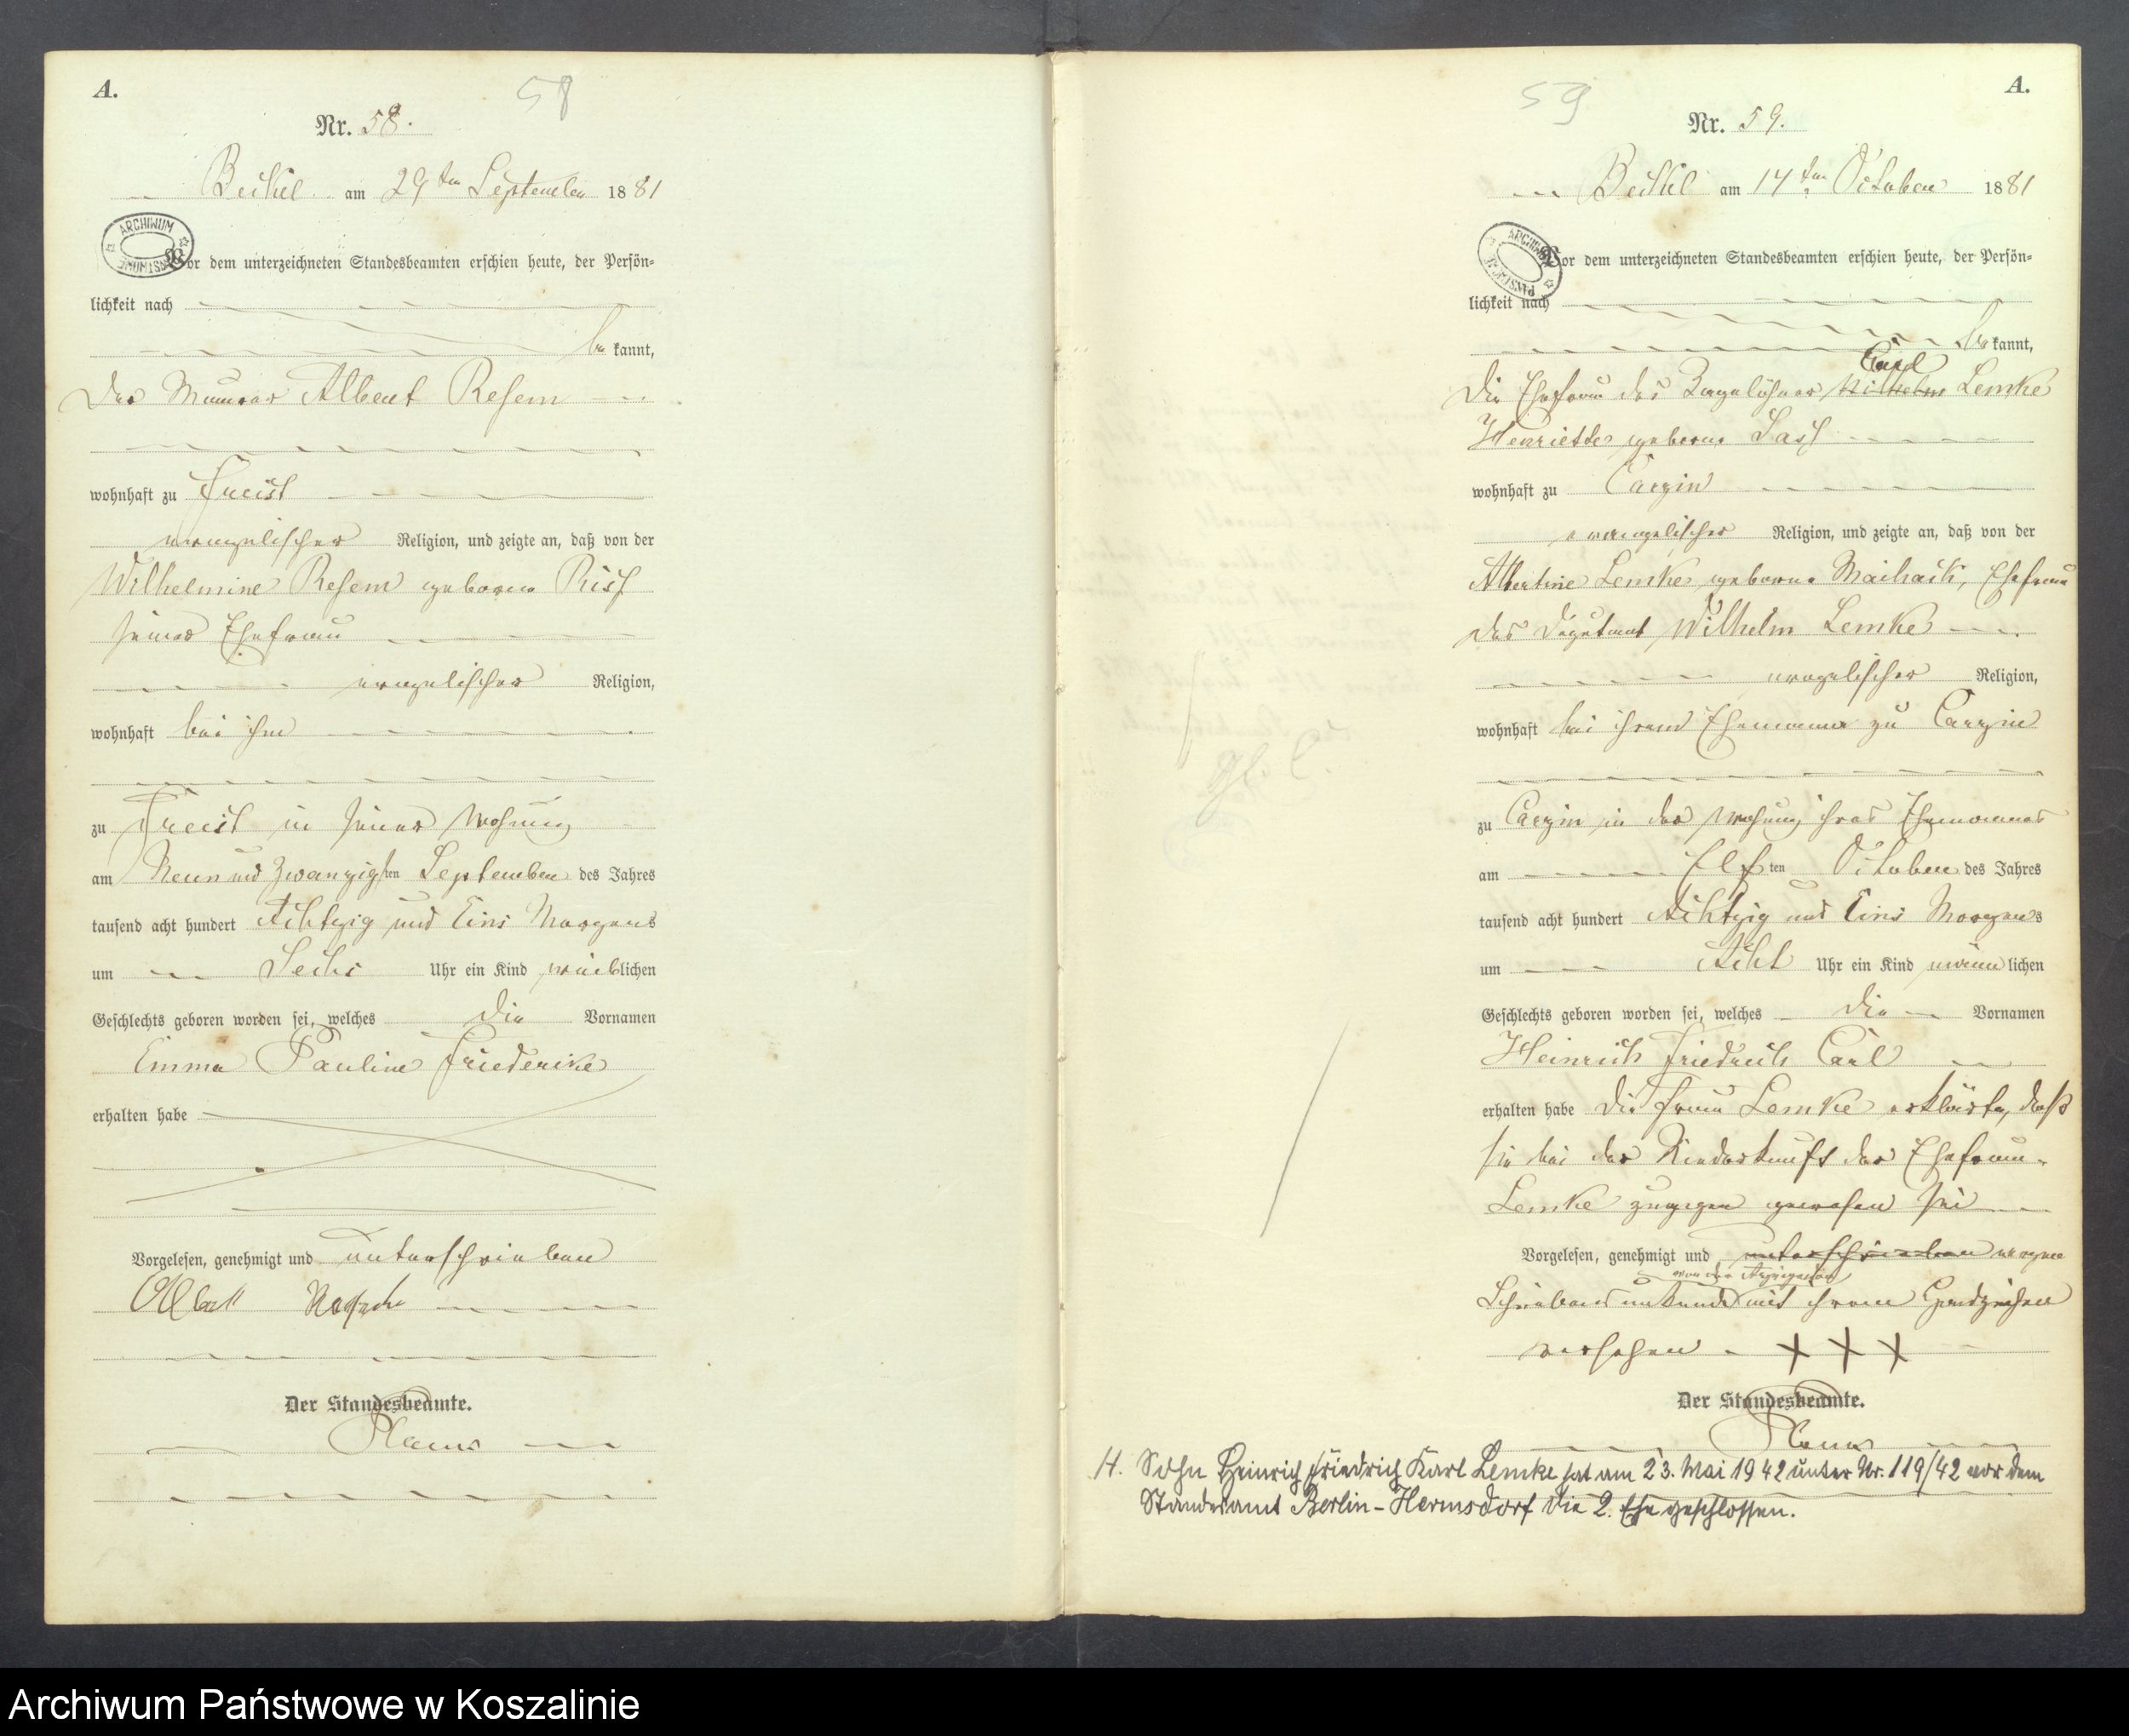 A.
58
Nr. 58.
Beckel am 29ten September 1881
ARCHIWUM
Vor dem unterzeichneten Standesbeamten erschien heute, der Persön=
lichkeit nach
be kannt,
der Maurer Albert Resem
wohnhaft zu Freist
evangelischer Religion, und zeigte an, daß von der
Wilhelmine Resem geborne
seiner Ehefrau
evangelischer Religion,
wohnhaft bei ihm
zu Freist in seiner Wohnung
am Neun und zwanzigsten September des Jahres
tausend acht hundert Achtzig und Eins Morgens
um Sechs Uhr ein Kind weiblichen
Geschlechts geboren worden sei, welches die Vornamen
Emma Pauline Friederike
erhalten habe
Vorgelesen, genehmigt und unterschrieben
Albert
Der Standesbeamte.
59
A.
Nr. 59.
Beckel am 14ten October 1881
ARCHIWUM
Vor dem unterzeichneten Standesbeamten erschien heute, der Persön=
lichkeit nach
be kannt,
Carl
die Ehefrau des Tagelöhner Wilhelm Lemke
Henriette geborne
wohnhaft zu Carzin
evangelischer Religion, und zeigte an, daß von der
Albertine Lemke, geborne Machack, Ehefrau
des Deputant Wilhelm Lemke
evangelischer Religion,
wohnhaft bei ihrem Ehemanne zu Carzin
zu Carzin in der Wohnung ihres Ehemannes
am Elften October des Jahres
tausend acht hundert Achtzig und Eins Morgens
um Acht Uhr ein Kind männlichen
Geschlechts geboren worden sei, welches die Vornamen
Heinrich Friedrich Carl
erhalten habe Die Frau Lemke erklärte, daß
sie bei der Niederkunft der Ehefrau
Lemke zugegen gewesen sei
Vorgelesen, genehmigt und unterschrieben wegen
von der
Schreibens unkunde mit ihrem Handzeichen
versehen - + + +
Der Standesbeamte.
H. Sohn Heinrich Friedrich Karl Lemke hat am 23. Mai 1942 unter Nr. 119/42 vor dem
Standesamt Berlin-Hermsdorf die 2. Ehe geschlossen.
Archiwum Państwowe w Koszalinie